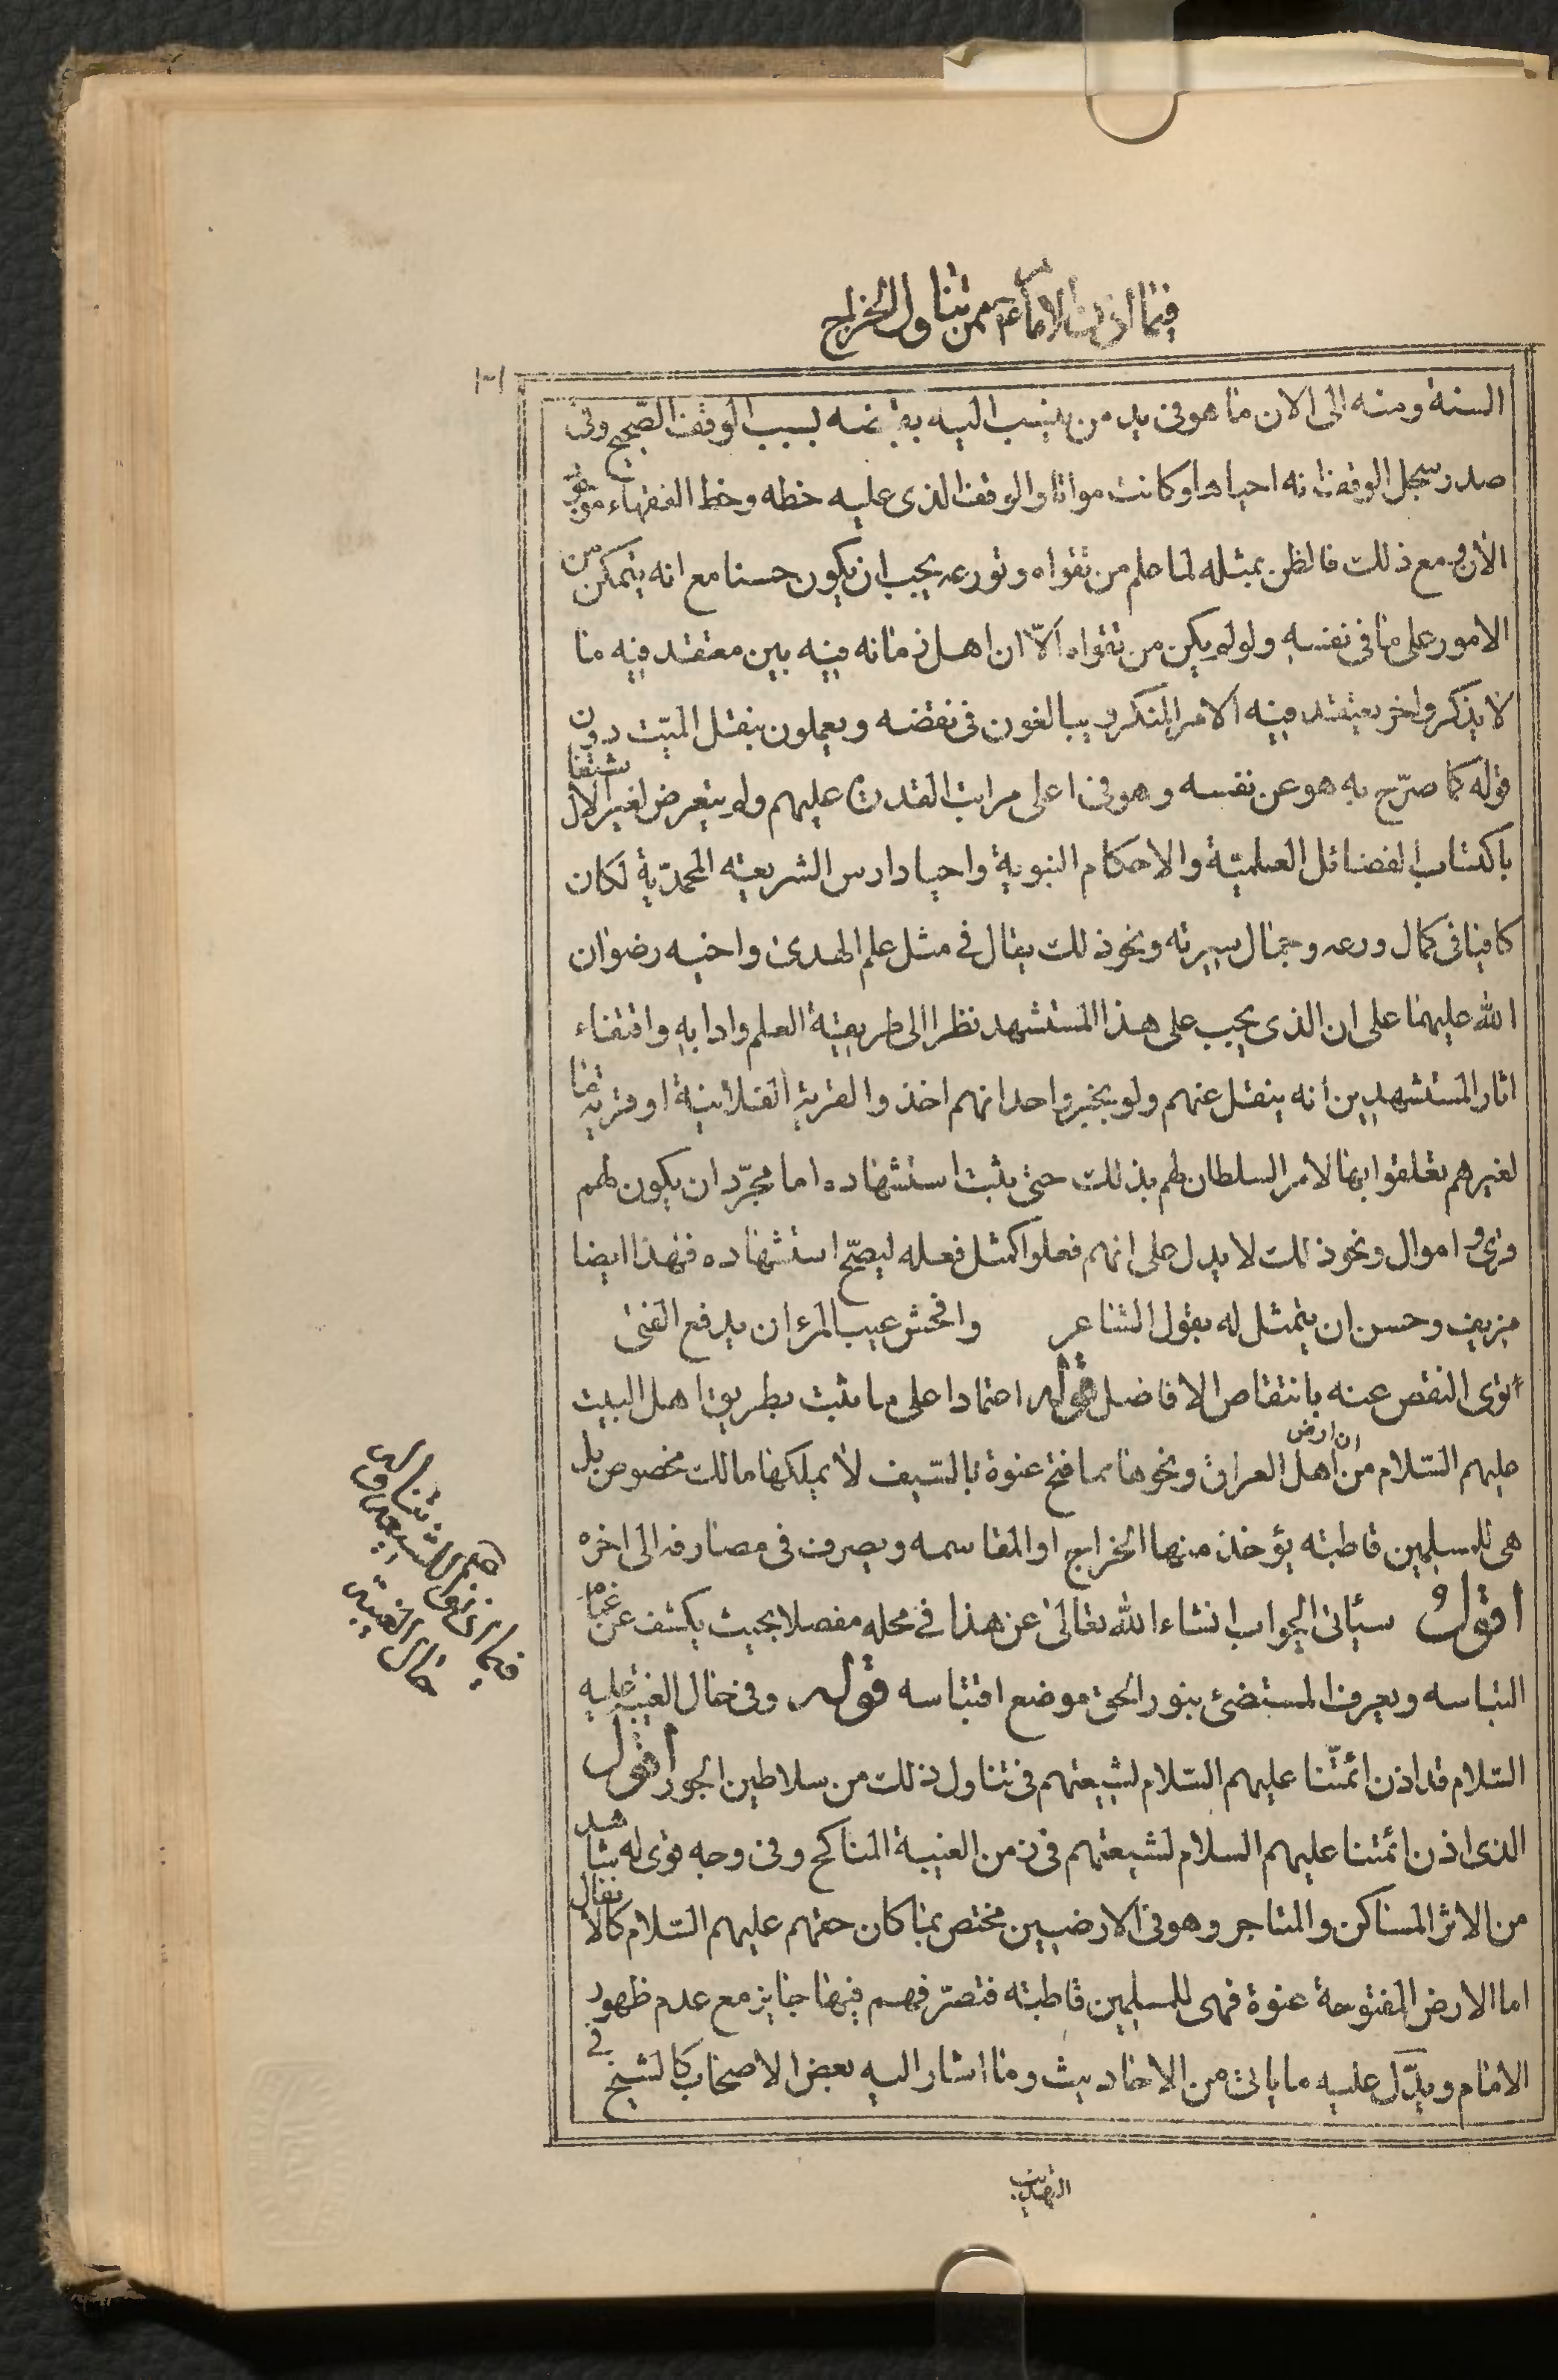 فيما اذن الامام من تناول الخراج
السنة ومنه الى الان ما هو فى يد من ينسب اليه بسبب الوقف الصحيح وفى
صدر سجل الوقف انه احياها وكانت مواتا والوقف الذى عليه خطه وخط الفقهاء موجود
الان ومع ذلك فالظن بمثله لما علم من تقواه وتورعه يجب ان يكون حسنا مع انه يتمكن من
الامور على ما فى نفسه ولو لم يكن من تقواه الّا ان اهل زمانه فيه بين معتقد فيه ما
لا يذكر واخر يعتقد فيه الامر المنكر ويبالغون فى نقضه ويعملون بنقل الميّت دون
قوله كما صرّح به هو عن نفسه وهو فى اعلى مراتب القدرة عليهم ولم يتعرض لغير الاشتغال
باكتساب الفضائل العلميّة والاحكام النبوية واحيا دارس الشريعة المحمدّية لكان
كافيا فى كمال ورعه وجمال سيرته ونحو ذلك يقال فى مثل علم الهدى واخيه رضوان
الله عليهما على ان الذى يجب على هذا المستشهد نظرا الى طريقة العلم وادابه واقتفاء
اثار المستشهدين انه ينقل عنهم ولو بخبر واحد انهم اخذوا القرية الفلانية او قرية ما
لغيرهم تعلقوا بها لامر السلطان لهم بذلك حتى يثبت استشهاده اما مجرّد ان يكون لهم
قرى واموال ونحو ذلك لا يدل على انهم فعلوا كمثل فعله ليصحّ استشهاده فهذا ايضا
مزيف وحسن ان يتمثل له بقول الشاعر وافحش عيب المرء ان يدفع الفتى
اذى النقص عنه بانتقاص الافاضل قوله اعتمادا على ما ثبت بطريق اهل البيت
عليهم السّلام من ان ارض اهل العراق ونحوها مما فتح عنوة بالسّيف لا يملكها مالك مخصوص بل
هى للمسلمين قاطبته يؤخذ منها الخراج او المقاسمه ويصرف فى مصارفه الى اخره
اقول سيأتى الجواب انشاء الله تعالى عن هذا فى محله مفصلا بحيث يكشف عن غياهب
التباسه ويعرف المستضئ بنور الحق موضع اقتباسه قوله وفى حال الغيبة عليه
السّلام قد اذن ائمتّنا عليهم السّلام لشيعتهم فى تناول ذلك من سلاطين الجور اقول
الذى اذن ائمتنا عليهم السلام لشيعتهم فى زمن الغيبة المناكح وفى وجه قوى له شاهد
من الاثر المساكن والمتاجر وهو فى الارضيين مختص بما كان حقهم عليهم السّلام كالانفال
اما الارض المفتوحة عنوة فهى للمسلمين قاطبته فتصرّفهم فيها جايز مع عدم ظهور
الامام ويدّل عليه ما ياتى من الاحاديث وما اشار اليه بعض الاصحاب كالشيخ فى
التهذيب
حال الغيبة